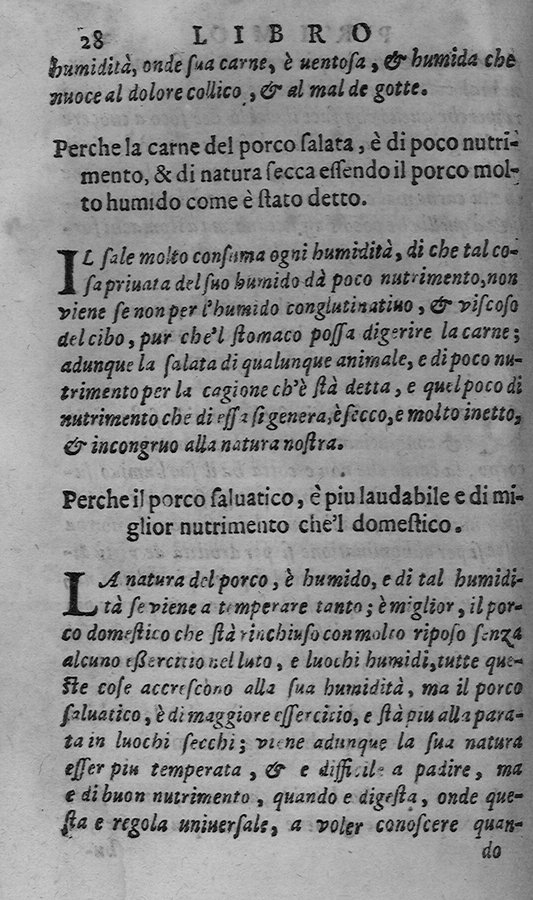 28 LIBRO
humidità, onde sua carne, è uentosa, & humida che
nuoce al dolore collico, & al mal de gotte.
Perche la carne del porco salata, è di poco nutri-
mento, & di natura secca essendo il porco mol-
to humido come è stato detto.
IL sale molto consuma ogni humidità, di che tal co-
sa priuata del suo humido dà poco nutrimento, non
viene se non per l'humido conglutinatiuo, & viscoso
del cibo, pur che'l stomaco possa digerire la carne;
adunque la salata di qualunque animale, e di poco nu-
trimento per la cagione ch'è stà detta, e quel poco di
nutrimento che di essa si genera, è secco, e molto inetto,
& incongruo alla natura nostra.
Perche il porco saluatico, è piu laudabile e di mi-
glior nutrimento che'l domestico.
LA natura del porco, è humido, e di tal humidi-
tà se viene a temperare tanto; è miglior, il por-
co domestico che stà rinchiuso con molto riposo senza
alcuno essercitio nel luto, e luochi humidi, tutte que-
ste cose accrescono alla sua humidità, ma il porco
saluatico, è di maggiore essercicio, e stà piu alla para-
ta in luochi secchi; viene adunque la sua natura
esser piu temperata, & e difficile a padire, ma
e di buon nutrimento, quando e digesta, onde que-
sta e regola uniuersale, a voler conoscere quan-
do